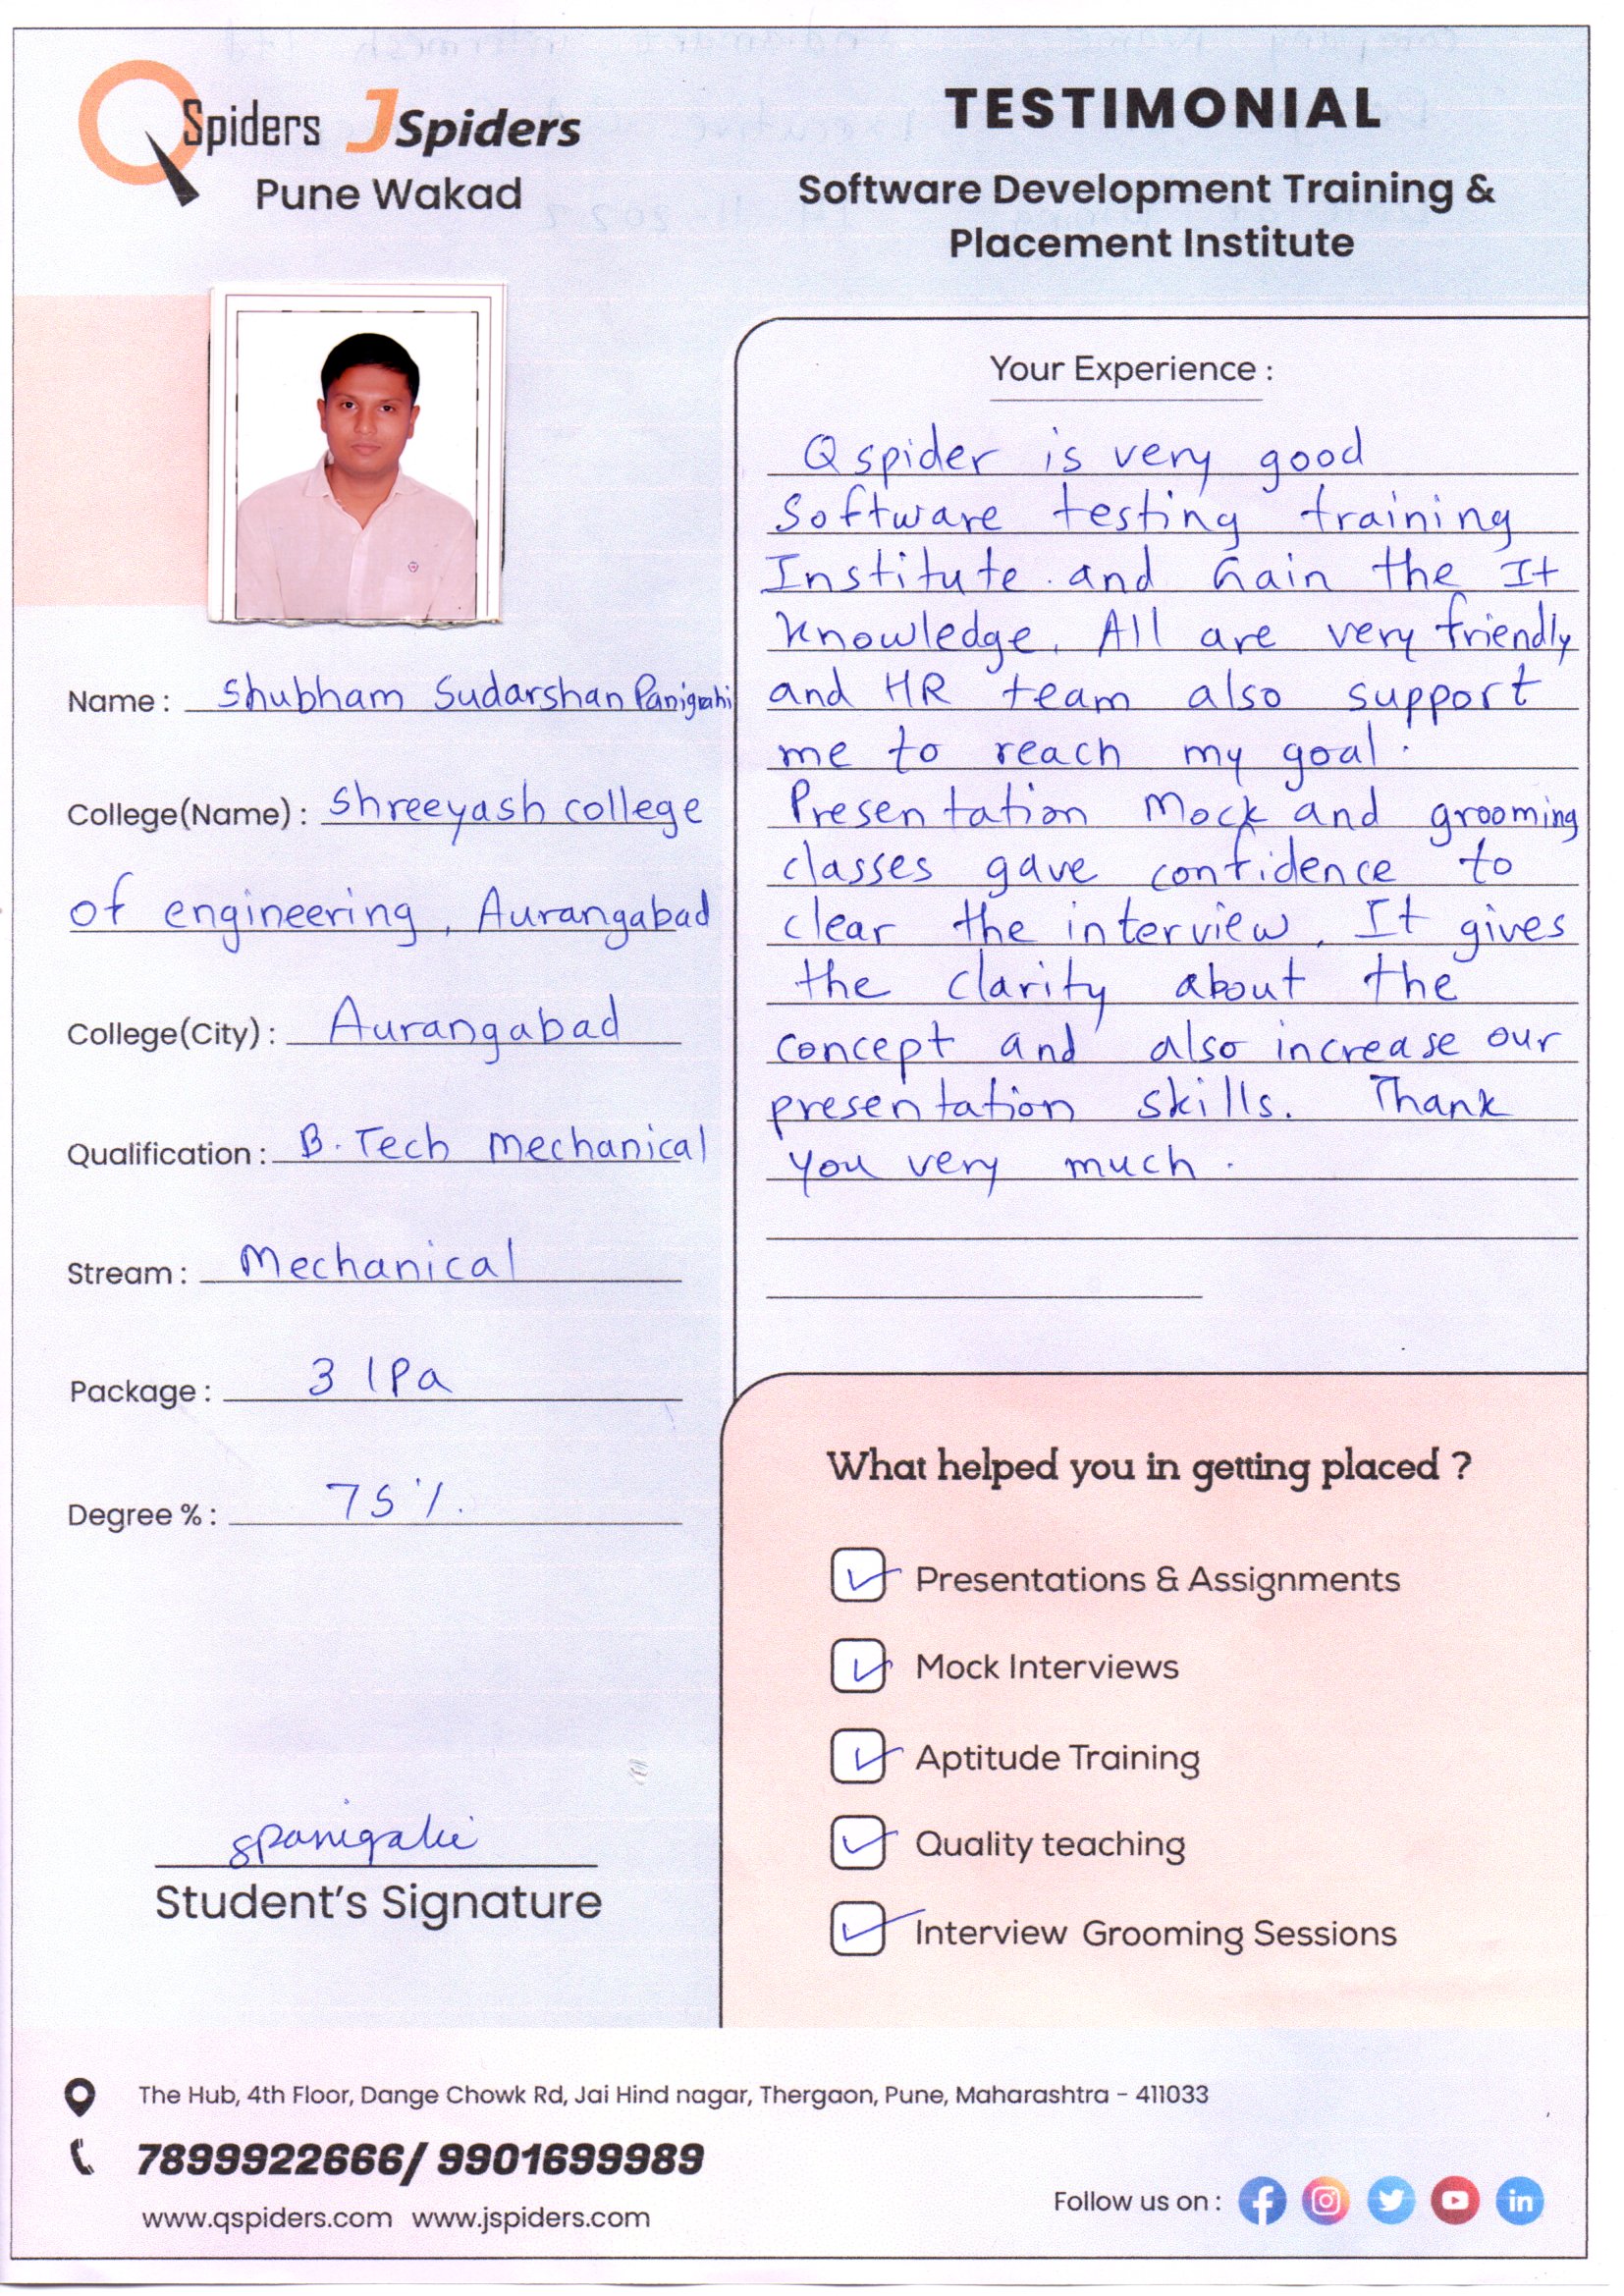 QSpiders JSpiders
Pune Wakad
TESTIMONIAL
Software Development Training &
Placement Institute
Name : Shubham Sudarshan Panigrahi
College(Name) : Shreeyash college
of engineering, Aurangabad
College(City) : Aurangabad
Qualification : B.Tech Mechanical
Stream : Mechanical
Package : 3 lPa
Degree % : 75 %.
Student's Signature
Your Experience :
Qspider is very good
Software testing training
Institute. and Gain the It
knowledge. All are very friendly
and HR team also support
me to reach my goal.
Presentation Mock and grooming
classes gave confidence to
clear the interview. It gives
the clarity about the
concept and also increase our
presentation skills. Thank
you very much.
What helped you in getting placed ?
Presentations & Assignments
Mock Interviews
Aptitude Training
Quality teaching
Interview Grooming Sessions
The Hub, 4th Floor, Dange Chowk Rd, Jai Hind nagar, Thergaon, Pune, Maharashtra - 411033
7899922666/ 9901699989
www.qspiders.com www.jspiders.com
Follow us on :